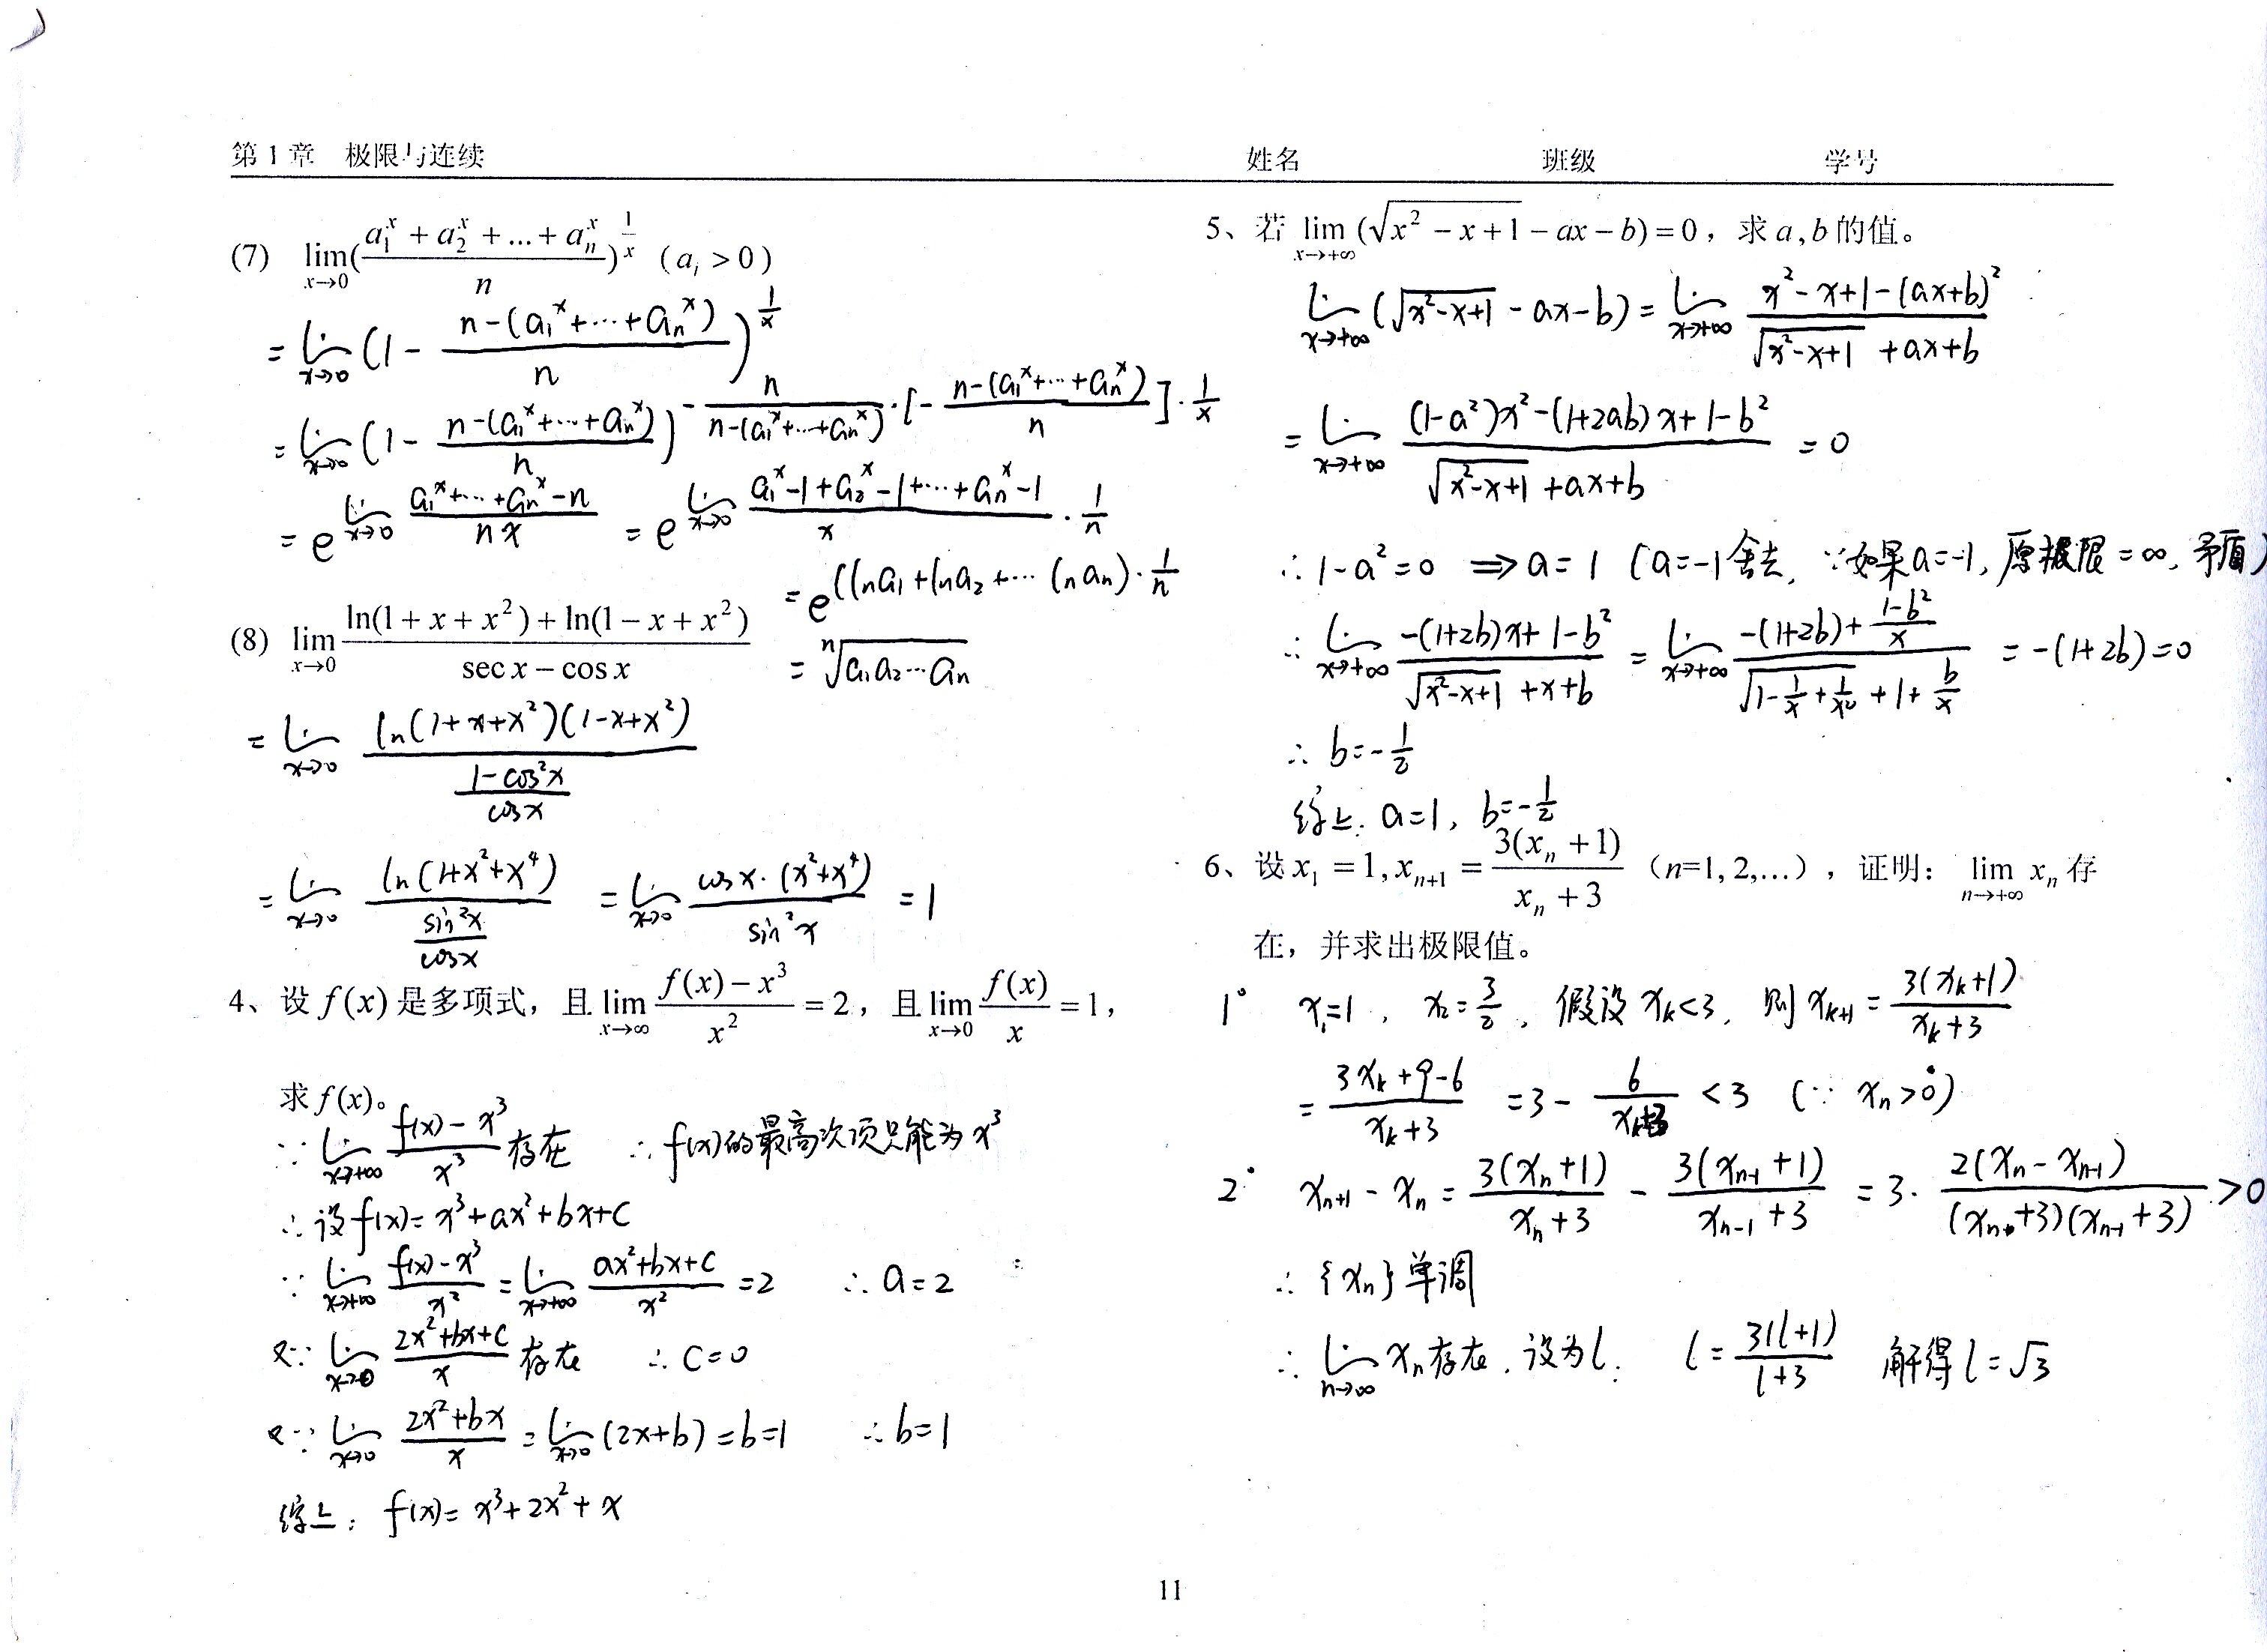 第 1 章 极限与连续 姓名 班级 学号
(7) lim_{x→0} (\frac{a_1^x + a_2^x + ... + a_n^x}{n})^{\frac{1}{x}} (a_i > 0)
= lim_{x→0} (1 - \frac{n-(a_1^x+⋯+a_n^x)}{n})^{\frac{1}{x}}
= lim_{x→0} (1 - \frac{n-(a_1^x+⋯+a_n^x)}{n})^{-\frac{n}{n-(a_1^x+⋯+a_n^x)}·[-\frac{n-(a_1^x+⋯+a_n^x)}{n}]·\frac{1}{x}}
= e^{lim_{x→0} \frac{a_1^x+⋯+a_n^x-n}{nx}} = e^{lim_{x→0} \frac{a_1^x-1+a_2^x-1+⋯+a_n^x-1}{x}·\frac{1}{n}}
= e^{(lna_1+lna_2+⋯lna_n)·\frac{1}{n}}
= \sqrt[n]{a_1a_2⋯a_n}
(8) lim_{x→0} \frac{ln(1+x+x^2)+ln(1-x+x^2)}{sec x - cos x}
= lim_{x→0} \frac{ln(1+x+x^2)(1-x+x^2)}{\frac{1-cos^2x}{cosx}}
= lim_{x→0} \frac{ln(1+x^2+x^4)}{\frac{sin^2x}{cosx}} = lim_{x→0} \frac{cosx·(x^2+x^4)}{sin^2x} = 1
4、设 f(x) 是多项式，且 lim_{x→∞} \frac{f(x)-x^3}{x^2} = 2，且 lim_{x→0} \frac{f(x)}{x} = 1，
求 f(x)。
∵ lim_{x→+∞} \frac{f(x)-x^3}{x^3} 存在 ∴ f(x)的最高次项只能为 x^3
∴ 设 f(x)= x^3+ax^2+bx+c
∵ lim_{x→+∞} \frac{f(x)-x^3}{x^2} = lim_{x→+∞} \frac{ax^2+bx+c}{x^2} = 2 ∴ a=2
又∵ lim_{x→0} \frac{2x^2+bx+c}{x} 存在 ∴ c=0
又∵ lim_{x→0} \frac{2x^2+bx}{x} = lim_{x→0} (2x+b) = b=1 ∴ b=1
综上: f(x)= x^3+2x^2+x
5、若 lim_{x→+∞} (\sqrt{x^2-x+1} - ax - b) = 0，求 a,b 的值。
lim_{x→+∞} (\sqrt{x^2-x+1} - ax-b) = lim_{x→+∞} \frac{x^2-x+1-(ax+b)^2}{\sqrt{x^2-x+1}+ax+b}
= lim_{x→+∞} \frac{(1-a^2)x^2-(1+2ab)x+1-b^2}{\sqrt{x^2-x+1}+ax+b} = 0
∴ 1-a^2=0 ⟹ a=1 (a=-1舍去, ∵如果a=-1, 原极限=∞, 矛盾)
∴ lim_{x→+∞} \frac{-(1+2b)x+1-b^2}{\sqrt{x^2-x+1}+x+b} = lim_{x→+∞} \frac{-(1+2b)+\frac{1-b^2}{x}}{\sqrt{1-\frac{1}{x}+\frac{1}{x^2}}+1+\frac{b}{x}} = -(1+2b)=0
∴ b=-\frac{1}{2}
综上: a=1, b=-\frac{1}{2}
6、设 x_1 = 1, x_{n+1} = \frac{3(x_n+1)}{x_n+3} (n=1,2,...)，证明: lim_{n→+∞} x_n 存
在，并求出极限值。
1° x_1=1, x_2=\frac{3}{2}, 假设 x_k<3, 则 x_{k+1} = \frac{3(x_k+1)}{x_k+3}
= \frac{3x_k+9-6}{x_k+3} = 3 - \frac{6}{x_k+3} < 3 (∵ x_n>0)
2° x_{n+1} - x_n = \frac{3(x_n+1)}{x_n+3} - \frac{3(x_{n-1}+1)}{x_{n-1}+3} = 3·\frac{2(x_n-x_{n-1})}{(x_n+3)(x_{n-1}+3)} > 0
∴ {x_n} 单调
∴ lim_{n→∞} x_n 存在, 设为 l: l = \frac{3(l+1)}{l+3} 解得 l=\sqrt{3}
11